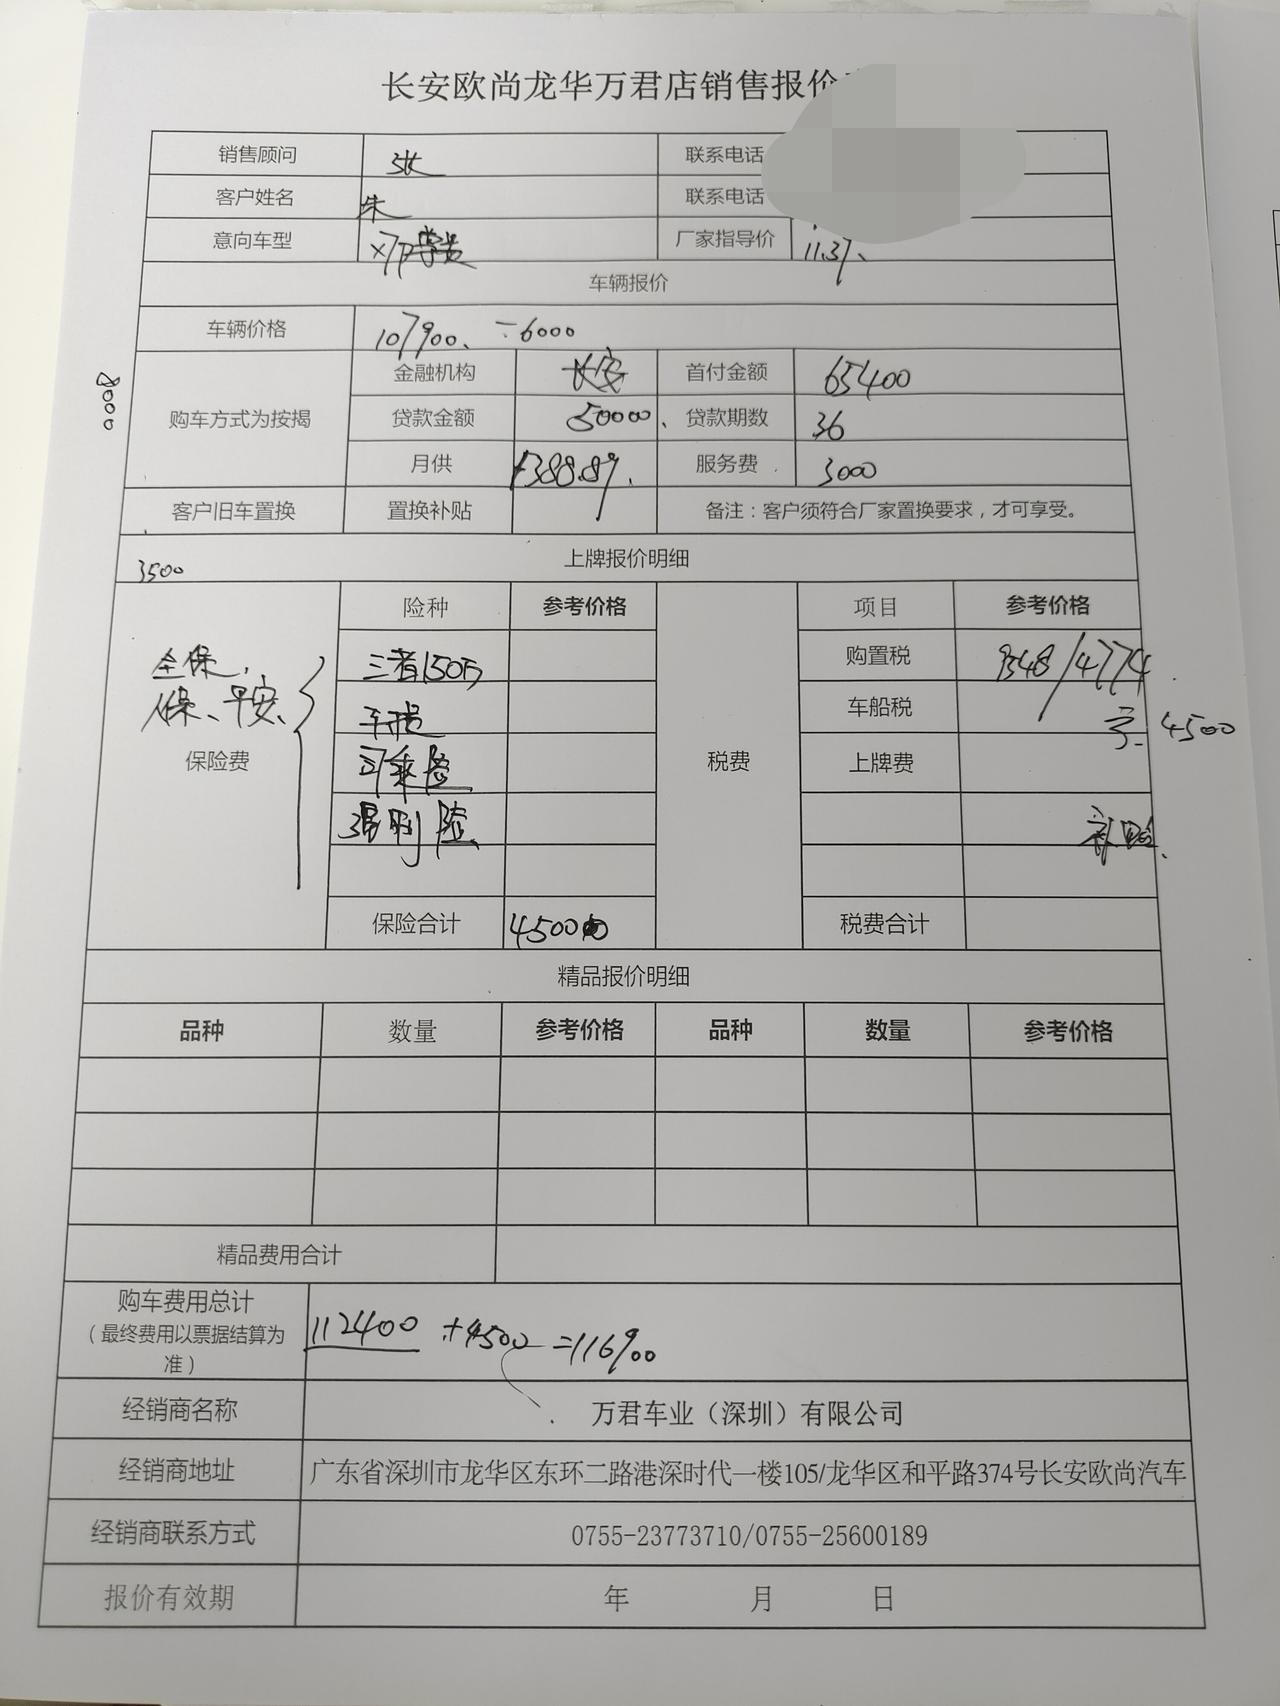 长安欧尚龙华万君店销售报价
销售顾问 张 联系电话
客户姓名 朱 联系电话
意向车型 X7P尊贵 厂家指导价 11.37、
车辆报价
车辆价格 107900、 -6000
8000
购车方式为按揭
金融机构 长安 首付金额 65400
贷款金额 50000、 贷款期数 36
月供 1388.89、 服务费 3000
客户旧车置换 置换补贴 备注：客户须符合厂家置换要求，才可享受。
3500 上牌报价明细
保险费 险种 参考价格 税费 项目 参考价格
全保、 三者150万 购置税 9548/4774
车损 车船税
4500
司乘险 上牌费
保险合计 4500 税费合计
精品报价明细
品种 数量 参考价格 品种 数量 参考价格
精品费用合计
购车费用总计
（最终费用以票据结算为准）
112400 +4500 =116900
经销商名称 万君车业（深圳）有限公司
经销商地址 广东省深圳市龙华区东环二路港深时代一楼105/龙华区和平路374号长安欧尚汽车
经销商联系方式 0755-23773710/0755-25600189
报价有效期 年 月 日